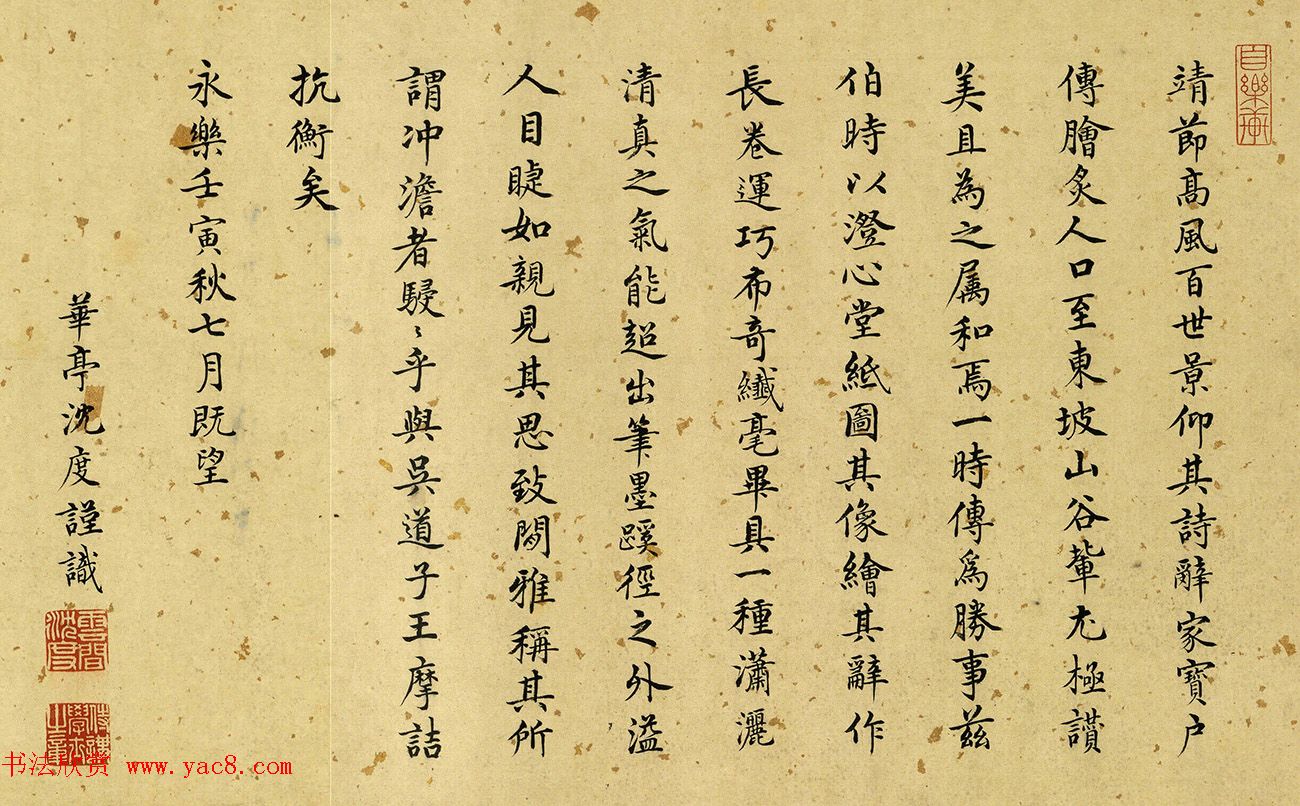 靖節髙風百世景仰其詩辭家寶户
傳膾炙人口至東坡山谷輩尤極讃
美且為之属和焉一時傳爲勝事兹
伯時以澄心堂紙圖其像繪其辭作
長卷運巧布奇纖毫畢具一種瀟灑
清真之氣能超出筆墨蹊徑之外溢
人目睫如親見其思致閑雅稱其所
謂冲澹者駸〻乎與吳道子王摩詰
抗衡矣
永樂壬寅秋七月既望
華亭沈度謹識
书法欣赏 www.yac8.com